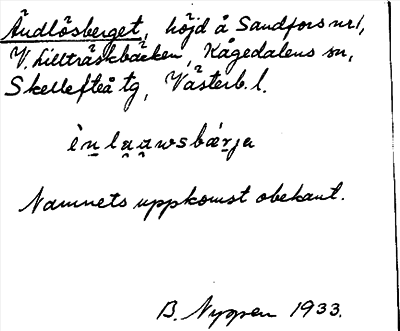 Ändlösberget, höjd å Sandfors nr 1,
V. Lillträskbäcken, Kågedalens sn,
Skellefteå tg, Västerb. l.
Namnets uppkomst obekant.
B. Nyppen 1933.